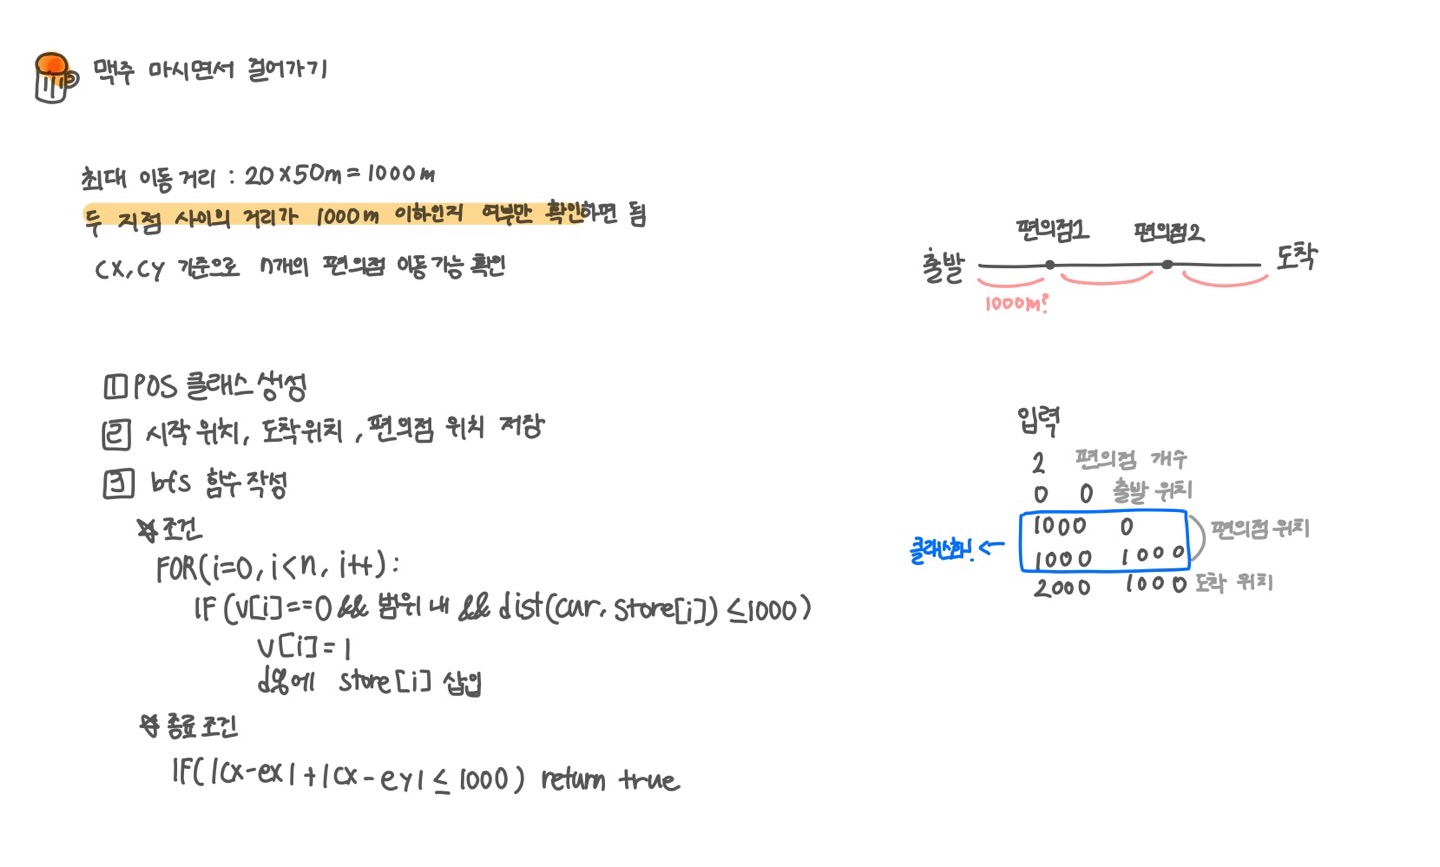 맥주 마시면서 걸어가기
최대 이동 거리 : 20×50m=1000m
두 지점 사이의 거리가 1000m 이하인지 여부만 확인하면 됨
cx, cy 기준으로 n개의 편의점 이동 가능 확인
1 POS 클래스 생성
2 시작 위치, 도착위치, 편의점 위치 저장
3 bfs 함수 작성
조건
FOR(i=0, i<n, i++):
IF (v[i]==0 && 범위 내 && dist(cur, store[i]) ≤1000)
v[i]=1
dq에 store[i] 삽입
종료 조건
IF(|cx-ex|+|cx-ey|≤1000) return true
편의점1 편의점2
출발 도착
1000M?
입력
2 편의점 개수
0 0 출발 위치
1000 0
1000 1000
편의점 위치
클래스화! ←
2000 1000 도착 위치